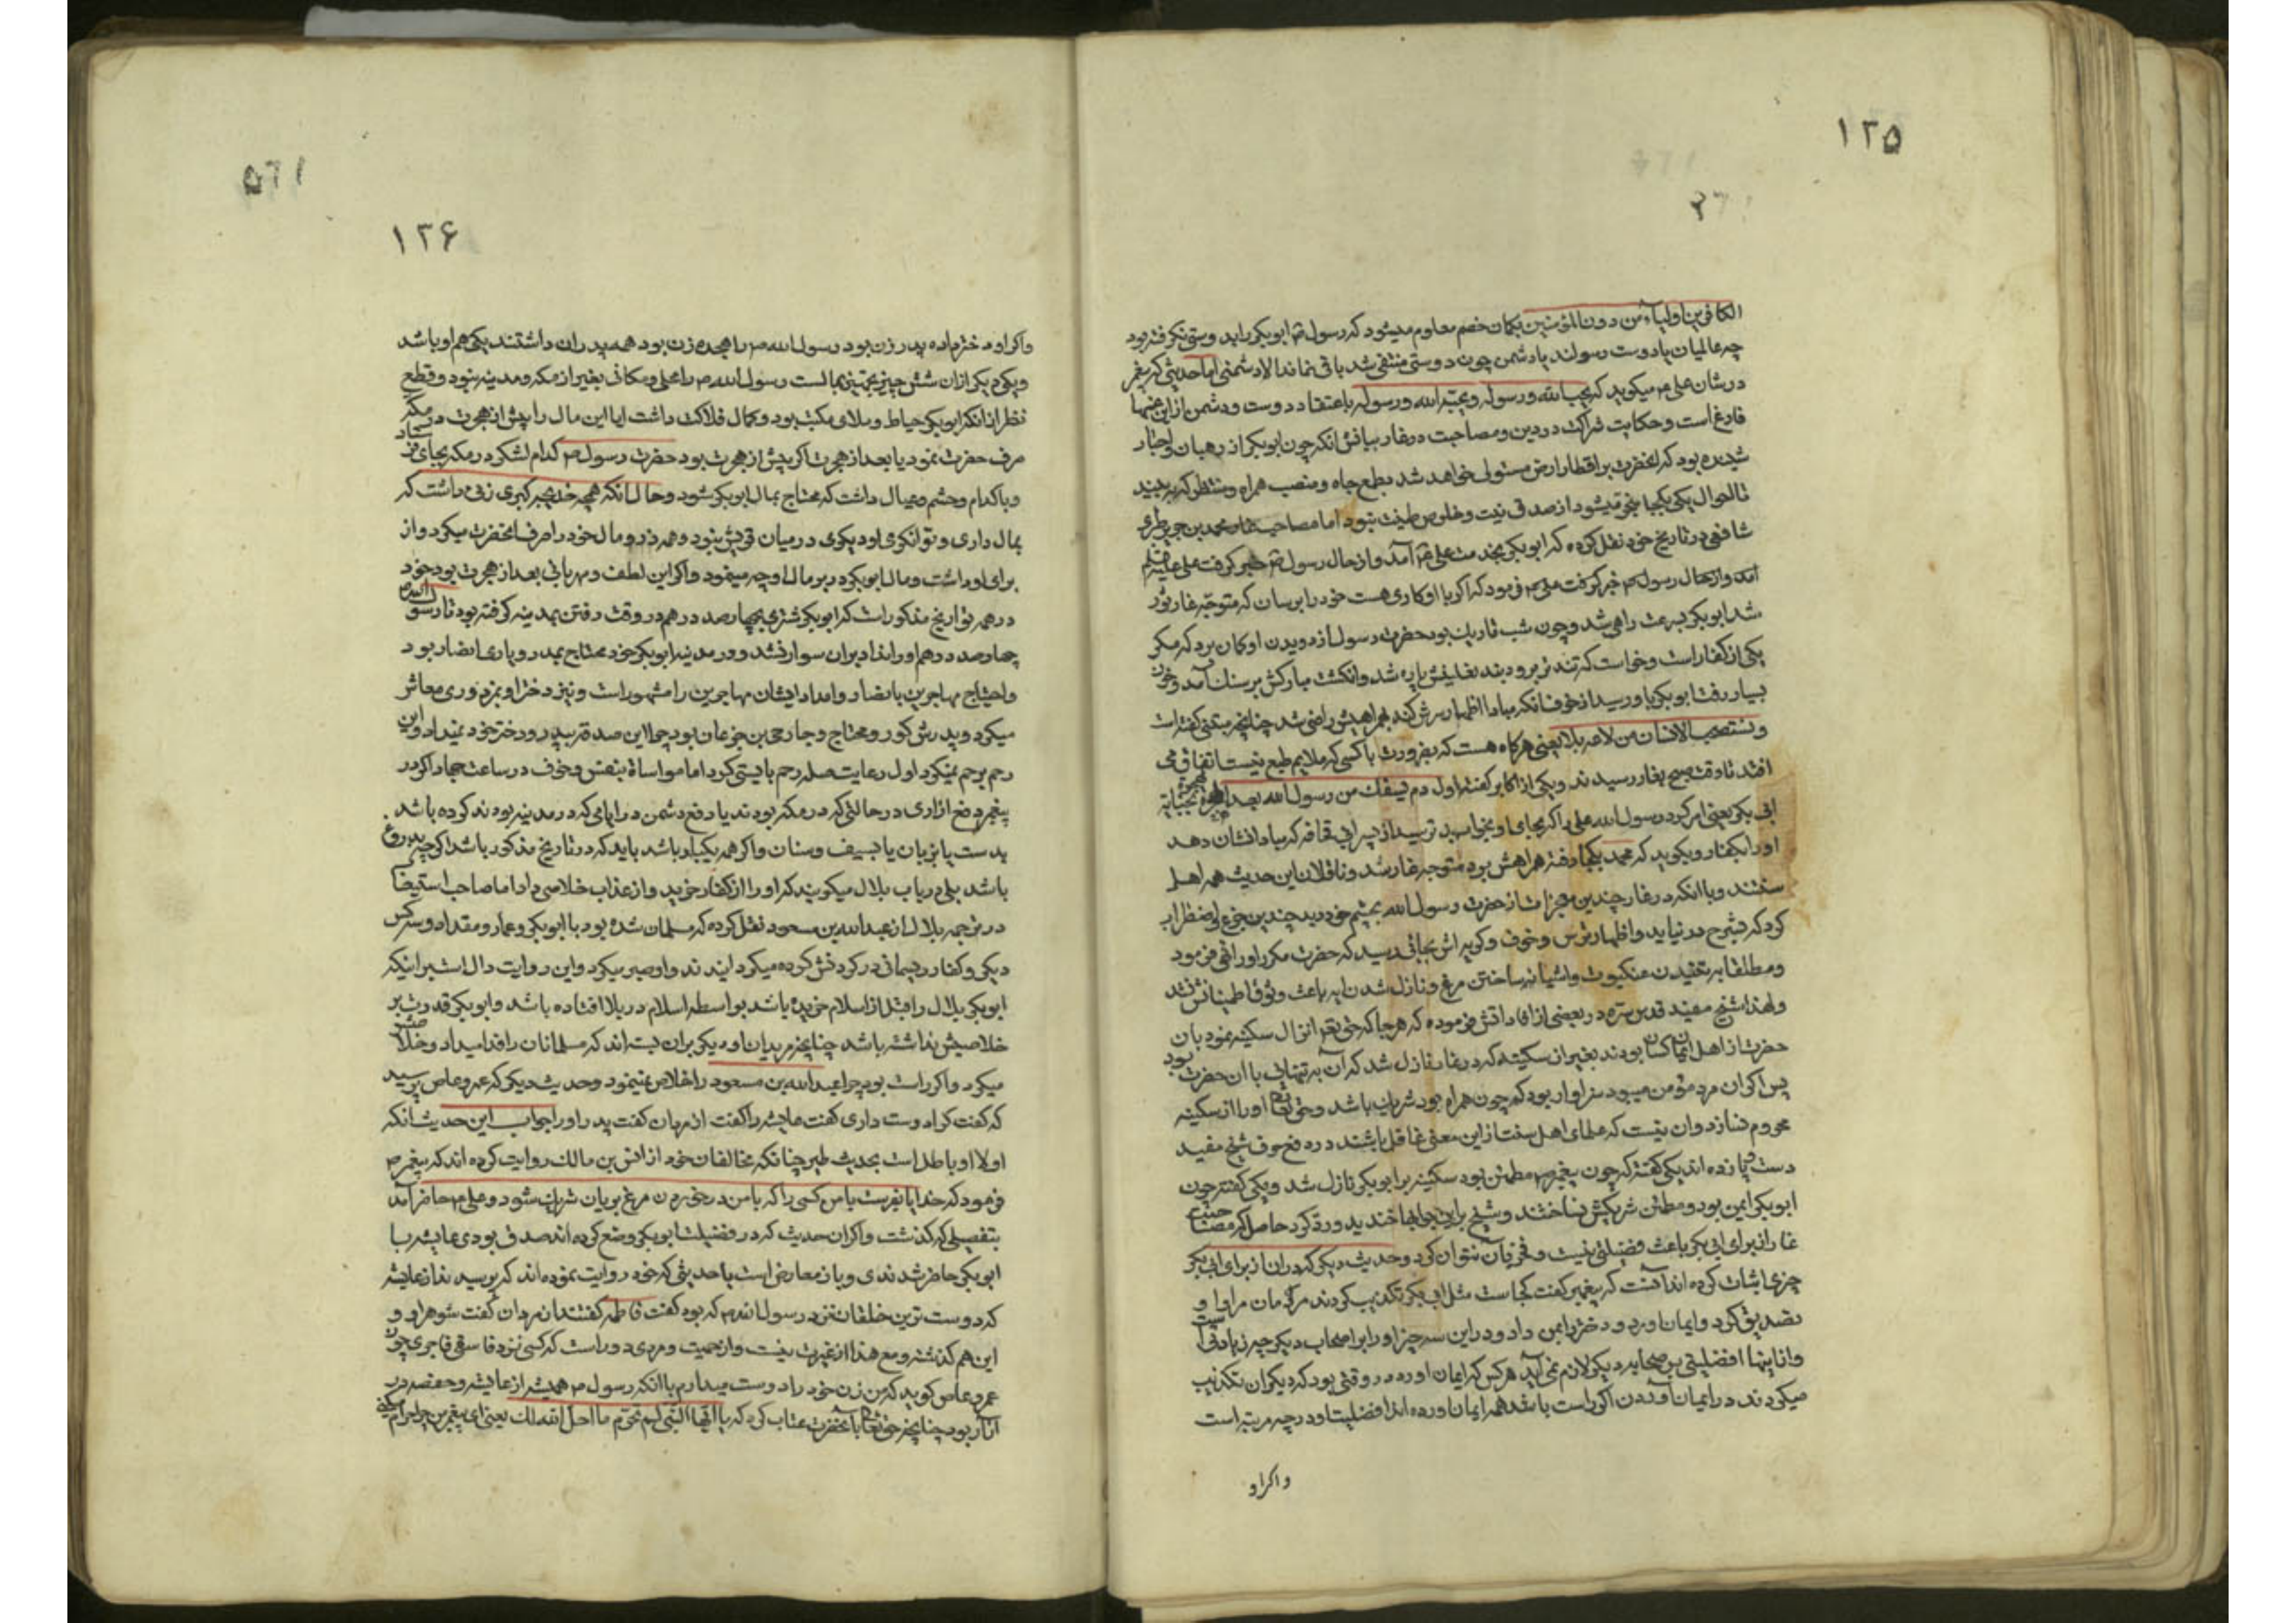 ۱۲۵
الکافرین اولیاء من دون المؤمنین بکمان خصم معلوم میشود که رسول ابوبکر را بدوستی نکرفته بود
چه عالمیان یا دوست رسولند یا دشمن چون دوستی منتفی شد باقی نماند الا دشمنی اما حدیثی که پیغمبر
در شان علی میکوید که یحب الله و رسوله و یحبه الله و رسوله باعتقاد دوست و دشمن از این
فارغ است و حکایت شراکت در دین و مصاحبت در غار بیانش انکه چون ابوبکر از رهبان و احبار
شنیده بود که انحضرت بر اقطار ارض مستولی خواهد شد بطمع جاه و منصب همراه و منتظر که به بیند
تا احوال یکی بکجا منجر میشود از صدق نیت و خلوص طینت نبود اما مصاحبت محمد بن جریر طبری
شافعی در تاریخ خود نقل کرده که ابوبکر بخدمت علی آمد و از حال رسول خبر کرفت علی علیه السلم
آمد و از حال رسول خبر کرفت علی فرمود که اکر با او کاری هست خود را برسان که متوجه غار ثور
شد ابوبکر بسرعت راهی شد و چون شب تاریک بود حضرت رسول از دویدن او کمان برد که مکر
یکی از کفار است و خواست که تند تر برود بند نعلینش پاره شد و انکشت مبارکش بر سنک آمد و خون
بسیار رفت ابوبکر باو رسید از خوف انکه مبادا اظهار سرش کند بهمراهیش راضی شد چنانچه متنبی کفته است
و یستصحب الانسان من لا یلایمه یعنی هر کاه هست که بضرورت با کسی که ملایم طبع نیست اتفاق می
افتد تا وقت صبح بغار رسیدند و یکی از اکابر کفته اول دم سفک من رسول الله بعد
ابی بکر یعنی امر کرد رسول الله علی را که بجای او بخوابد ترسید از پسر ابی قحافه که مبادا نشان دهد
او را بکفار و بکوید که محمد بکجا رفته همراهش برد متوجه غار شد و ناقلان این حدیث همه اهل
سنتند و با انکه در غار چندین معجزات از حضرت رسول الله بچشم خود دید چندین جزع و اضطراب
کرد که بشرح در نیاید و اظهار ترس و خوف و کریه اش بجائی رسید که حضرت مکرر او را نهی فرمود
و مطلقا به تنیدن عنکبوت و آشیانه ساختن مرغ و نازل شدن آیه باعث وثوق و اطمینانش نشد
و لهذا شیخ مفید قدس سره در بعضی از افاداتش فرموده که هر جا که حق تعم انزال سکینه نمود بان
حضرت از اهل ایمان کسان بودند بغیر از سکینه که در غار نازل شد که آن به تنهائی با ان حضرت بود
پس اکر ان مرد مؤمن میبود سزاوار بود که چون همراه بود شریک باشد و حق تعم او را از سکینه
محروم نسازد و ان نیست که علمای اهل سنت از این معنی غافل باشند در دفع حرف شیخ مفید
دست و پا زده اند یکی کفته که چون پیغمبر مطمئن بود سکینه بر ابوبکر نازل شد و یکی کفته چون
ابوبکر ایمن بود و مطمئن شریکش نساختند و شیخ براین جوابها خندید و رد کرد حاصل که مصاحبت
غار از برای ابی بکر باعث فضیلتی نیست و فخر بآن نتوان کرد و حدیث دیکر که در ان از برای ابی بکر
چیزی اثبات کرده اند آنست که پیغمبر کفت کجاست مثل ابی بکر تکذیب کردند مردمان مرا و او
تصدیق کرد و ایمان اورد و دختر بمن داد و در این سه چیز او را بر اصحاب دیکر چه زیادتی است
و از اینها افضلیتی بر صحابه دیکر لازم نمی آید هر کس که ایمان اورده در وقتی بود که دیکران تکذیب
میکردند در ایمان آوردن اکر راست باشد همه ایمان اورده اند افضلیت او در چه مرتبه است
و اکر او
۱۲۶
و اکر او دختر داده پدر زن بود رسول الله را هجده زن بود همه پدران داشتند یکی هم او باشد
و یکی دیکر از ان شش چیز تجهیز بمالست رسول الله را محلی و مکانی بغیر از مکه و مدینه نبود و قطع
نظر از انکه ابوبکر خیاط و ملای مکتب بود و کمال فلاکت داشت ایا این مال را پیش از هجرت در مکه
صرف حضرت نمود یا بعد از هجرت اکر پیش از هجرت بود حضرت رسول کدام لشکر در مکه بجای فرستاد
و یا کدام و حشم و عیال داشت که محتاج بمال ابوبکر شود و حال انکه همچه خدیجه کبری زنی داشت که
بمال داری و توانکری او دیکری در میان قریش نبود و همه زر و مال خود را صرف انحضرت میکرد و از
برای او داشت و مال ابوبکر در بر مال او چه مینمود و اکر این لطف و مهربانی بعد از هجرت بود خود
در همه تواریخ مذکور است که ابوبکر شتری بچهار صد درهم در وقت رفتن بمدینه کرفته بود تا رسول الله
چهار صد درهم او را نداد بران سوار نشد و در مدینه ابوبکر خود محتاج بمدد و یاری انصار بود
و احتیاج مهاجرین بانصار و امداد ایشان مهاجرین را مشهور است و نیز دختر او بمزدوری معاش
میکرد و پدرش کور و محتاج و جارچی بن جزعان بود چرا این صدقه بپدر و دختر خود نمیداد و این
رحم برحم نمیکرد اول رعایت صله رحم بایستی کرد اما مواساة بنفس و خوف در ساعت جهاد اکر در
پیغمبر دفع ازاری در حالتی که در مکه بودند یا دفع دشمن در ایامی که در مدینه بودند کرده باشد
بدست یا بزبان یا بسیف و سنان و اکر همه یکبار باشد باید که در تاریخ مذکور باشد اکرچه بدروغ
باشد بلی در باب بلال میکویند که او را از کفار خرید و از عذاب خلاصی داد اما صاحب استیعاب
در ترجمه بلال از عبدالله بن مسعود نقل کرده که مسلمان شده بود با ابوبکر و عمار و مقداد و سه کس
دیکر و کفار ریسمانی در کردنش کرده میکردانیدند و او صبر میکرد و این روایت دال است بر اینکه
ابوبکر بلال را قبل از اسلام خریده باشد بواسطه اسلام در بلا افتاده باشد و ابوبکر قدرت بر
خلاصیش نداشته باشد چنانچه مریدان او دیکر بران بسته اند که مسلمانان را فدا میداد و خلاص
میکرد و اکر راست بود چرا عبدالله بن مسعود را خلاص نمینمود و حدیث دیکر که عمرو عاص پرسید
که کفت کرا دوست داری کفت عایشه را کفت از مردان کفت پدر او را جواب این حدیث انکه
اولا او باطل است بحدیث طیر چنانکه مخالفان خود از انس بن مالک روایت کرده اند که پیغمبر
فرمود که خدایا بفرست بامن کسی را که با من در خوردن مرغ بریان شریک شود و علی حاضر آمد
بتفصیلی که کذشت و اکر ان حدیث که در فضیلت ابوبکر وضع کرده اند صدق بودی عایشه با
ابوبکر حاضر شدندی و باز معارض است با حدیثی که خود روایت نموده اند که پرسیدند از عایشه
که دوست ترین خلقان نزد رسول الله که بود کفت فاطمه کفتند از مردان کفت شوهر او و
این هم کذشته و مع هذا از غیرت نیست و از حمیت و مردی دور است که کسی نزد فاسقی فاجری چون
عمرو عاص کوید که من زن خود را دوست میدارم با انکه رسول همیشه از عایشه و حفصه در
آزار بود چنانچه حق تعم بآنحضرت عتاب کرد که یا ایها النبی لم تحرم ما احل الله لک یعنی ای پیغمبر من چرا حرام میکنی